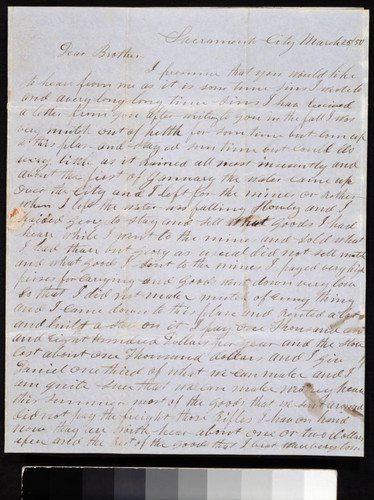 Sacramento City March 20/50
Dear Brother
I presume that you would like
to hear from me as it is som time sins I wrote to
and a very long long time sins I hav recived
a letter from you after writing to you in the fall I was
very mutch out of helth for som time but cam up
to this place and stayed som time but could do
very little as it rained all most insecently and
about the first of Jannary the water came up
over the City and I left for the mines or
when I left the water was falling slowly and I
to stay and sell what goods I had
hear while I went to the mines and sold what
I had thair but as usual did not sell mutch
and what goods I sent to the mines I payed very high
prises for carrying and goods went down very low
so that I did not make mutch of enny thing
and I came down to this place and rented a lot
and built a store on it I pay one Thousand
and Eight Hundred Dollars per year and the store
cost about one Thousand dollars and I giv
Daniel one third of what we can make and I
am quite sure that we can make money hear
this summer most of the goods that we sent around
did not pay the freight those Rifles I hav on hand
now they are worth hear about one or two dollars
apece and the rest of the goods that I